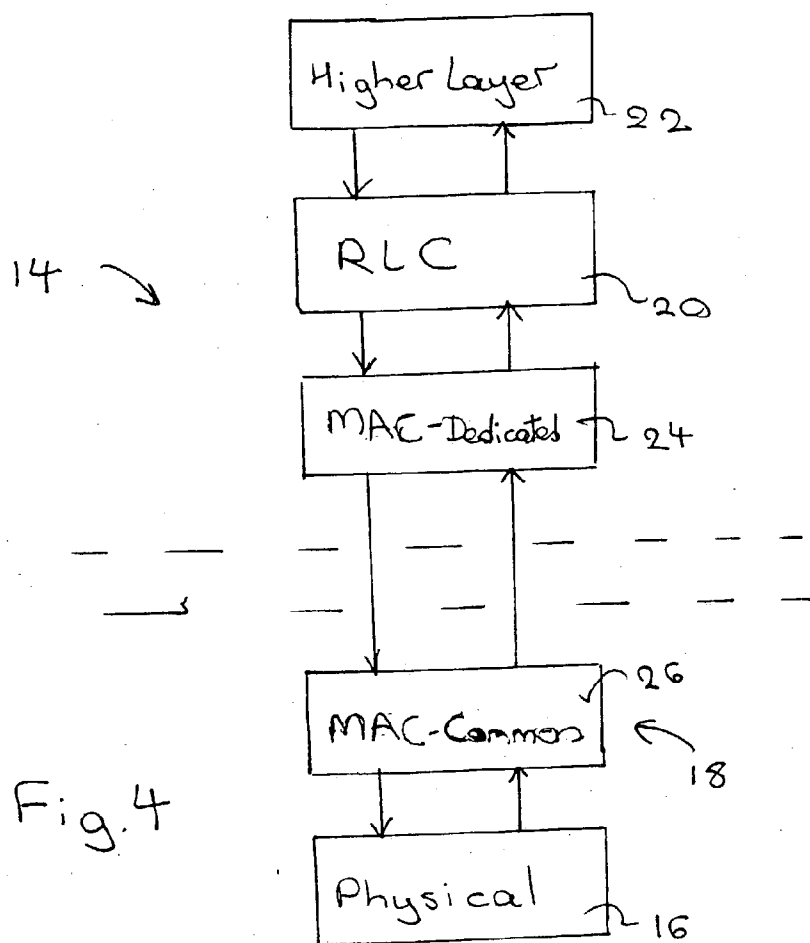 Higher Layer
22
RLC
14
20
MAC-Dedicated
24
26
MAC-Common
18
Fig. 4
Physical
16